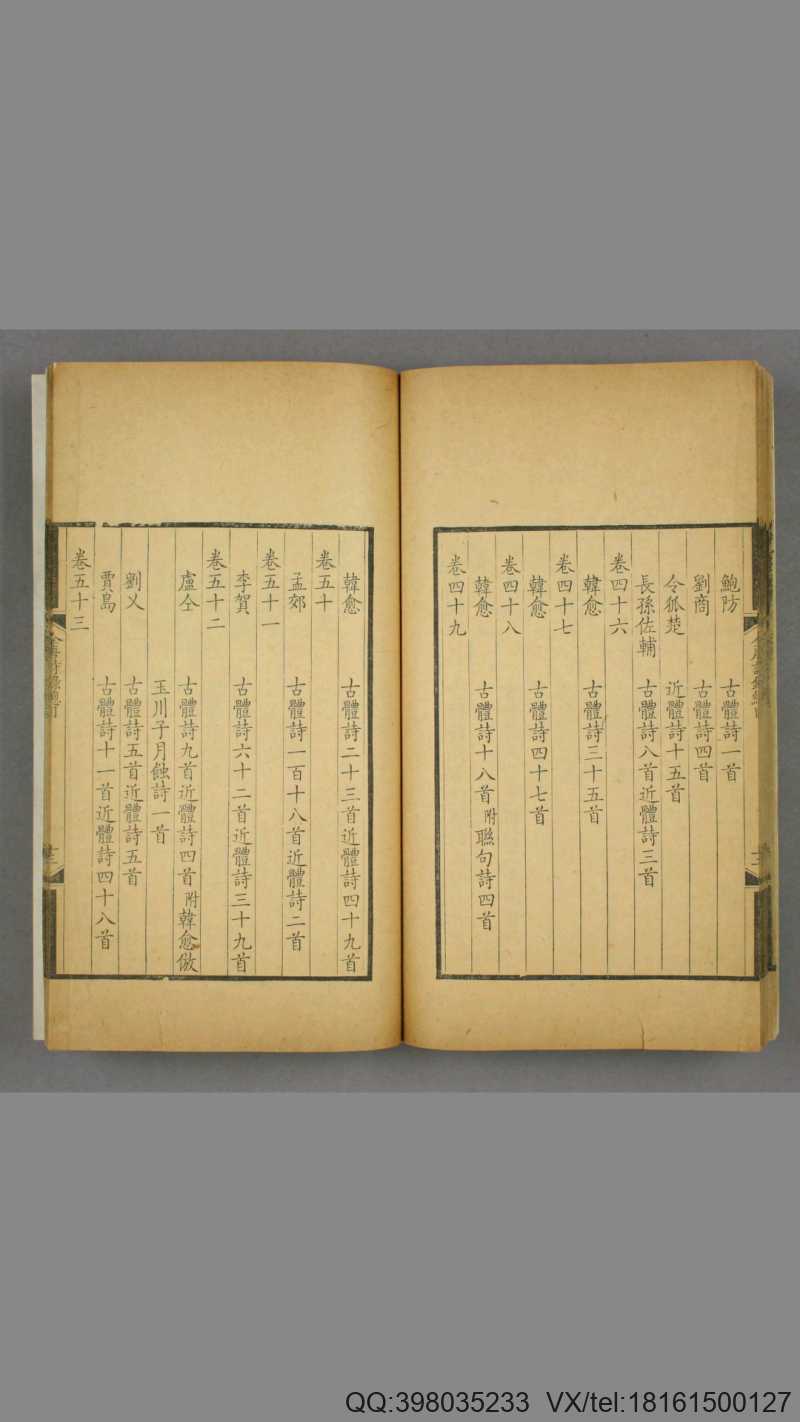 鮑防 古體詩一首
劉商 古體詩四首
令狐楚 近體詩十五首
長孫佐輔 古體詩八首近體詩三首
卷四十六
韓愈 古體詩三十五首
卷四十七
韓愈 古體詩四十七首
卷四十八
韓愈 古體詩十八首附聯句詩四首
卷四十九
韓愈 古體詩二十三首近體詩四十九首
卷五十
孟郊 古體詩一百十八首近體詩二首
卷五十一
李賀 古體詩六十二首近體詩三十九首
卷五十二
盧仝 古體詩九首近體詩四首附韓愈倣
玉川子月蝕詩一首
劉乂 古體詩五首近體詩五首
賈島 古體詩十一首近體詩四十八首
卷五十三
QQ:398035233 VX/tel:18161500127